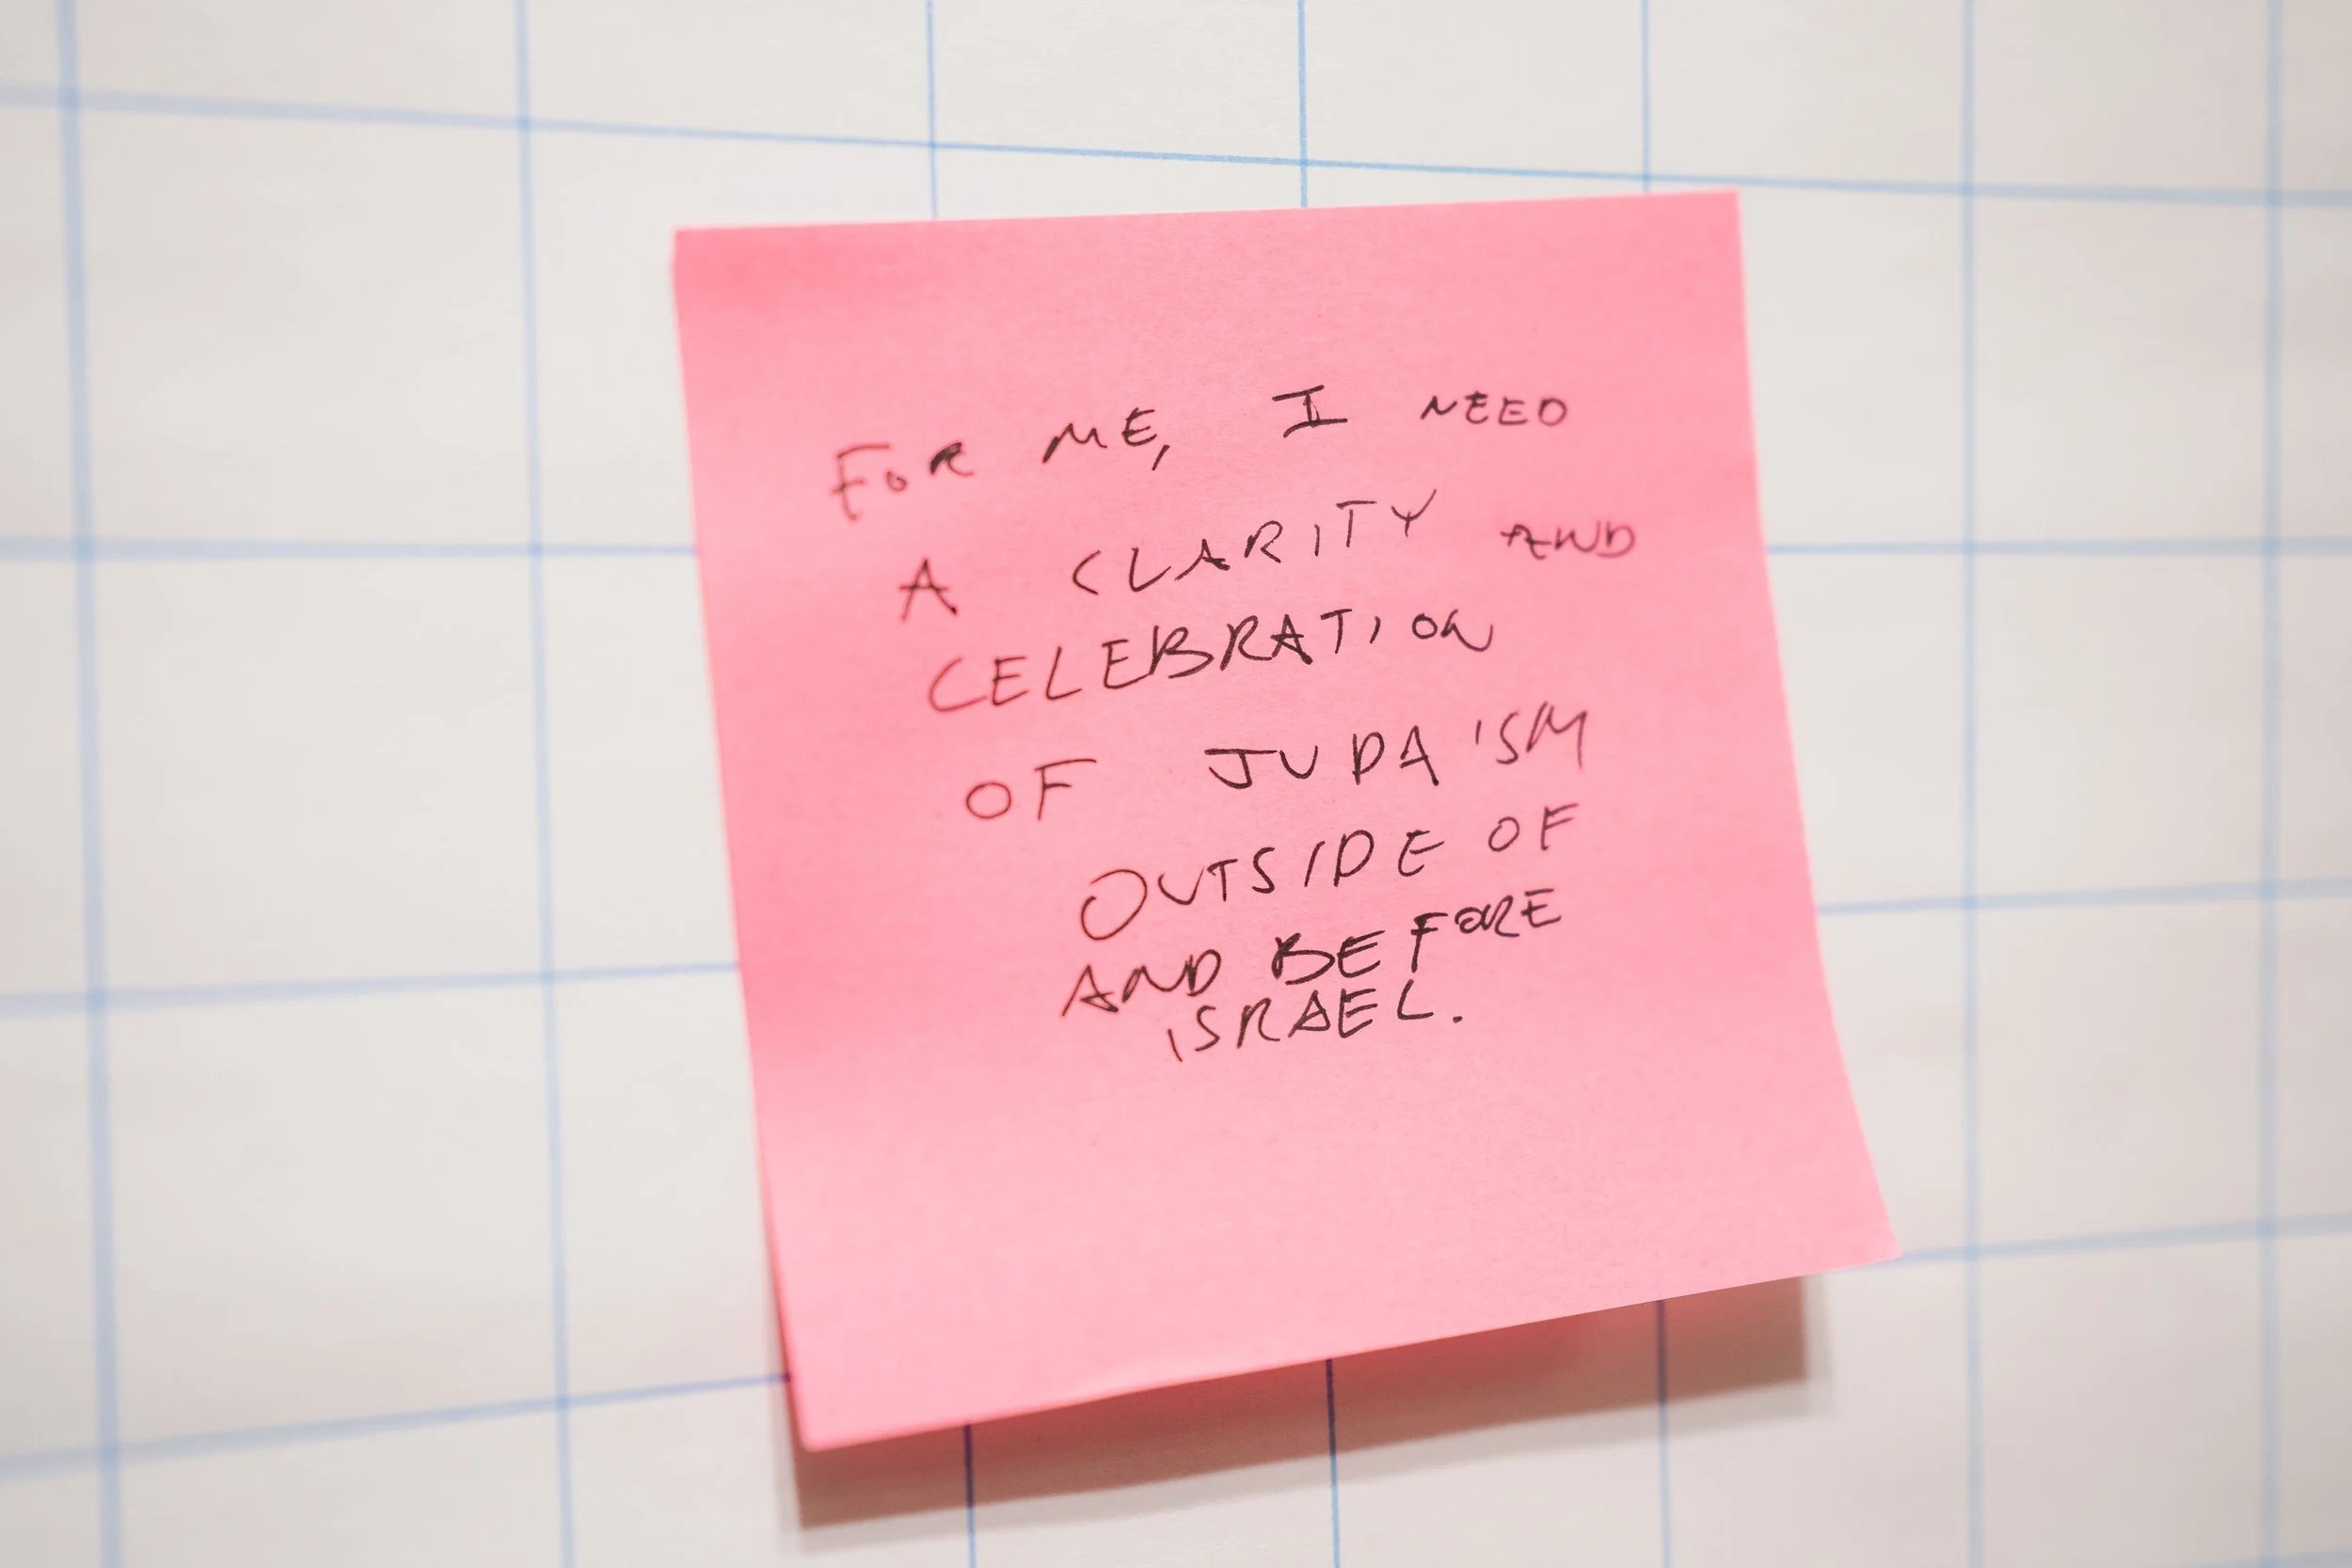 FOR ME, I NEED
A CLARITY AND
CELEBRATION
OF JUDAISM
OUTSIDE OF
AND BEFORE
ISRAEL.